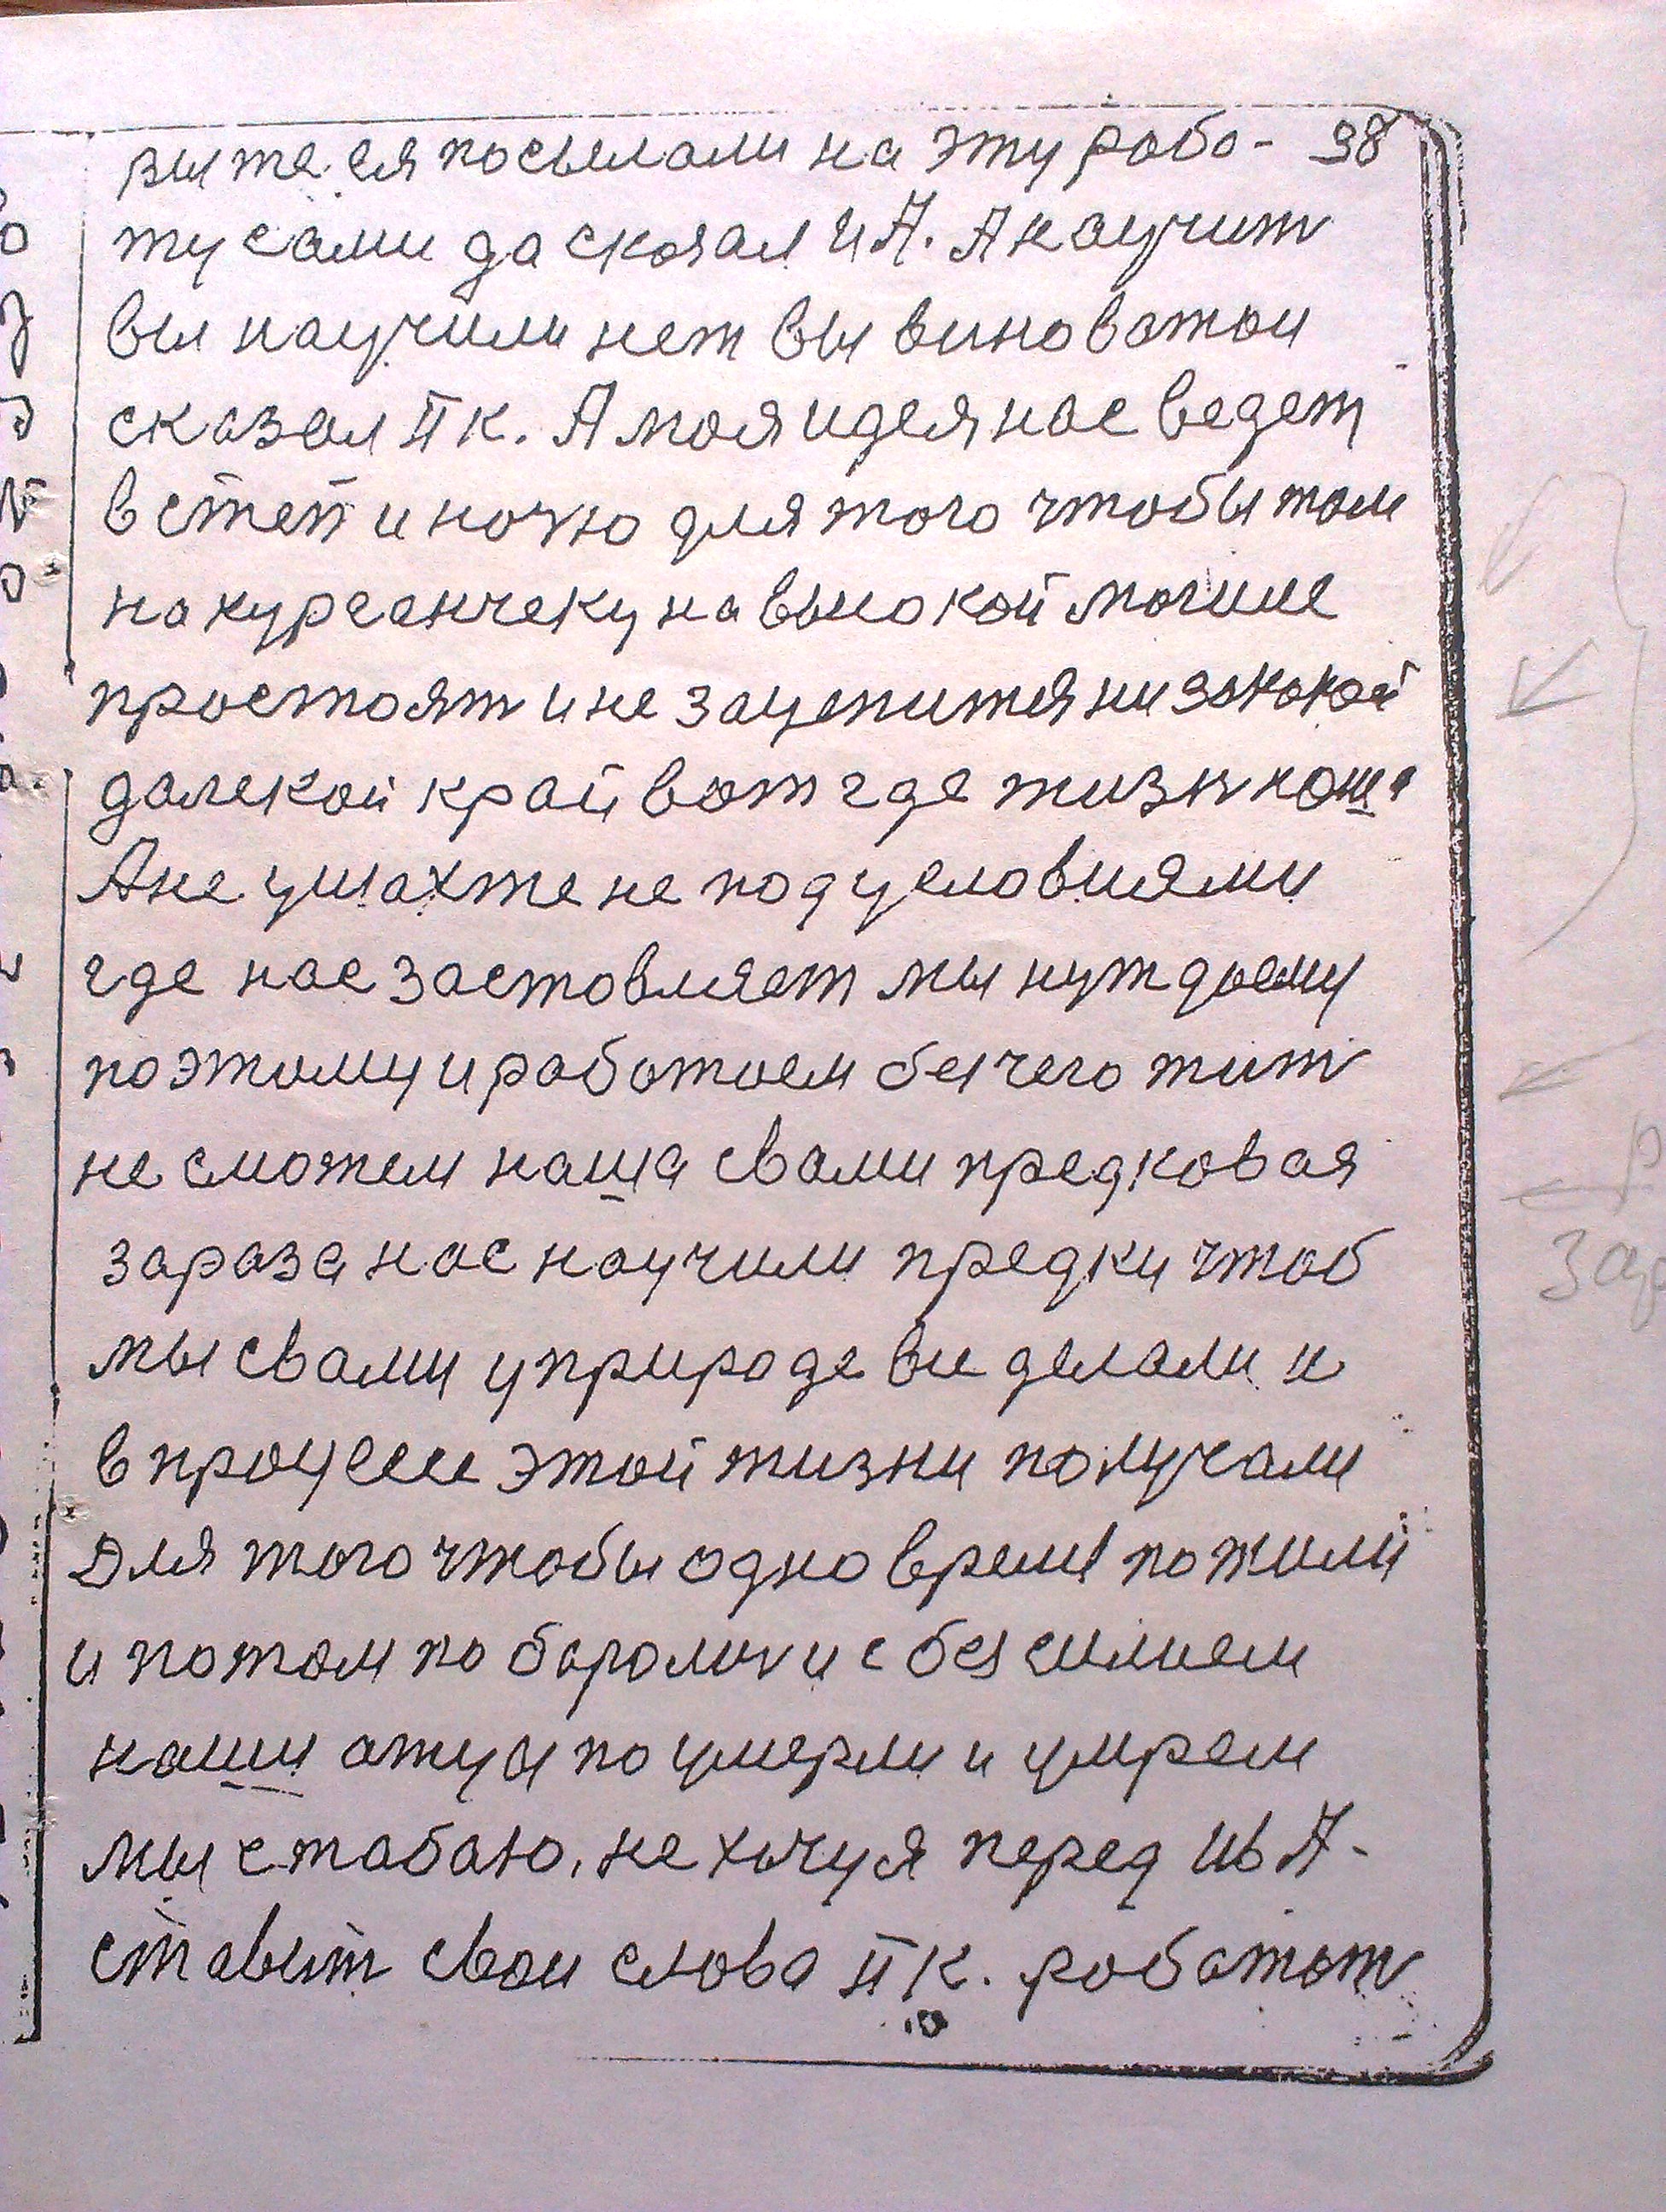 вы же ся посылали на эту рабо- 98
ту сами да сказал И А. А научит
вы научили нет вы виноватои
сказал П К. А моя идея нас ведет
в степ и ночю для того чтобы там
на курганчеку на высокой могиле
простоят и не зацепится ни за какой
далекой край вот где жизн наша
А не у шахте не под условиями
где нас заставляет мы нуждаему
поэтому и работаем бычего жит
не сможем наша свами предковая
зараза нас научили предки чтоб
мы свами у природе ви делали и
в процеси этой жизни получали
Для того чтобы одно время пожили
и потом по баролис и с безсилием
наши отцы по умерли и умрем
мы стобаю. не хочу я перед Ив А.
ставит свои слова П К. работат
зар